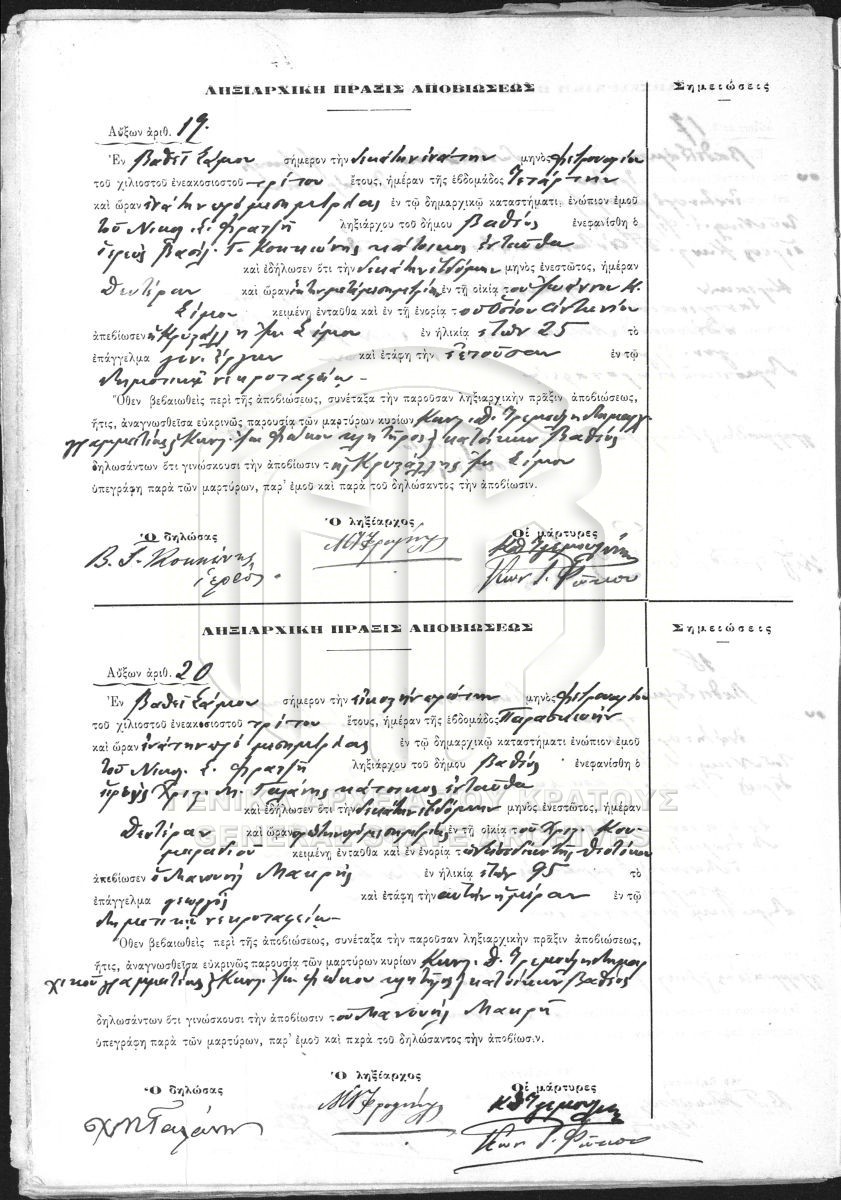 ΛΗΞΙΑΡΧΙΚΗ ΠΡΑΞΙΣ ΑΠΟΒΙΩΣΕΩΣ
Σημειώσεις
Αὔξων ἀριθ. 19.
Ἐν Βαθεῖ Σάμου σήμερον τὴν δεκάτην ἐνάτην μηνὸς Φεβρουαρίου
τοῦ χιλιοστοῦ ἐνεακοσιοστοῦ τρίτου ἔτους, ἡμέραν τῆς ἑβδομάδος Τετάρτην
καὶ ὥραν ἐνάτην πρὸ μεσημβρίας ἐν τῷ δημαρχικῷ καταστήματι ἐνώπιον ἐμοῦ
τοῦ Νικολ. Σ. ληξιάρχου τοῦ δήμου Βαθέος ἐνεφανίσθη ὁ
ἱερεὺς Βασίλ. Γ. Κοκκώνης κάτοικος ἐνταῦθα
καὶ ἐδήλωσεν ὅτι τὴν δεκάτην ἑβδόμην μηνὸς ἐνεστῶτος, ἡμέραν
Δευτέραν καὶ ὥραν ἐν τῇ οἰκίᾳ τοῦ Ἰωάννου Κ.
Σίμου κειμένη ἐνταῦθα καὶ ἐν τῇ ἐνορίᾳ τοῦ Ὁσίου Ἀντωνίου
ἀπεβίωσεν ἡ Ἰω. Σίμου ἐν ἡλικίᾳ ἐτῶν 25 τὸ
ἐπάγγελμα καὶ ἐτάφη τὴν ἐν τῷ
δημοτικῷ νεκροταφείῳ.—
Ὅθεν βεβαιωθεὶς περὶ τῆς ἀποβιώσεως, συνέταξα τὴν παροῦσαν ληξιαρχικὴν πρᾶξιν ἀποβιώσεως,
ἥτις, ἀναγνωσθεῖσα εὐκρινῶς παρουσίᾳ τῶν μαρτύρων κυρίων Κωνσ. Θ. δημαρχ.
γραμματέως & Κωνσ. Ἰω. Φώκου κλητῆρος κατοίκων Βαθέος
δηλωσάντων ὅτι γινώσκουσι τὴν ἀποβίωσιν τῆς Ἰω. Σίμου
ὑπεγράφη παρὰ τῶν μαρτύρων, παρ' ἐμοῦ καὶ παρὰ τοῦ δηλώσαντος τὴν ἀποβίωσιν.
Ὁ δηλώσας
Ὁ ληξίαρχος
Οἱ μάρτυρες
Β. Γ. Κοκκώνης
ἱερεὺς
Κων. Γ. Φώκου
ΛΗΞΙΑΡΧΙΚΗ ΠΡΑΞΙΣ ΑΠΟΒΙΩΣΕΩΣ
Σημειώσεις
Αὔξων ἀριθ. 20
Ἐν Βαθεῖ Σάμου σήμερον τὴν εἰκοστὴν πρώτην μηνὸς Φεβρουαρίου
τοῦ χιλιοστοῦ ἐνεακοσιοστοῦ τρίτου ἔτους, ἡμέραν τῆς ἑβδομάδος Παρασκευὴν
καὶ ὥραν ἐνάτην πρὸ μεσημβρίας ἐν τῷ δημαρχικῷ καταστήματι ἐνώπιον ἐμοῦ
τοῦ Νικολ. Σ. ληξιάρχου τοῦ δήμου Βαθέος ἐνεφανίσθη ὁ
ἱερεὺς Χριστ. Μ. Γαλάνης κάτοικος ἐνταῦθα
καὶ ἐδήλωσεν ὅτι τὴν δεκάτην ἑβδόμην μηνὸς ἐνεστῶτος, ἡμέραν
Δευτέραν καὶ ὥραν πρώτην πρὸ μεσημβρίας ἐν τῇ οἰκίᾳ τοῦ Χριστ.
κειμένη ἐνταῦθα καὶ ἐν ἐνορίᾳ τῆς Θεοτόκου
ἀπεβίωσεν ὁ Μανουὴλ Μακρῆς ἐν ἡλικίᾳ ἐτῶν 95 τὸ
ἐπάγγελμα γεωργὸς καὶ ἐτάφη τὴν αὐτὴν ἡμέραν ἐν τῷ
δημοτικῷ νεκροταφείῳ.—
Ὅθεν βεβαιωθεὶς περὶ τῆς ἀποβιώσεως, συνέταξα τὴν παροῦσαν ληξιαρχικὴν πρᾶξιν ἀποβιώσεως,
ἥτις, ἀναγνωσθεῖσα εὐκρινῶς παρουσίᾳ τῶν μαρτύρων κυρίων Κωνσ. Θ. δημαρ
χικοῦ γραμματέως & Κωνσ. Ἰω. Φώκου κλητῆρος κατοίκων Βαθέος
δηλωσάντων ὅτι γινώσκουσι τὴν ἀποβίωσιν τοῦ Μανουὴλ Μακρῆ
ὑπεγράφη παρὰ τῶν μαρτύρων, παρ' ἐμοῦ καὶ παρὰ τοῦ δηλώσαντος τὴν ἀποβίωσιν.
Ὁ δηλώσας
Ὁ ληξίαρχος
Οἱ μάρτυρες
Χ Μ Γαλάνης
Κων. Γ. Φώκου
ΓΕΝΙΚΑ ΑΡΧΕΙΑ ΤΟΥ ΚΡΑΤΟΥΣ
GENERAL STATE ARCHIVES